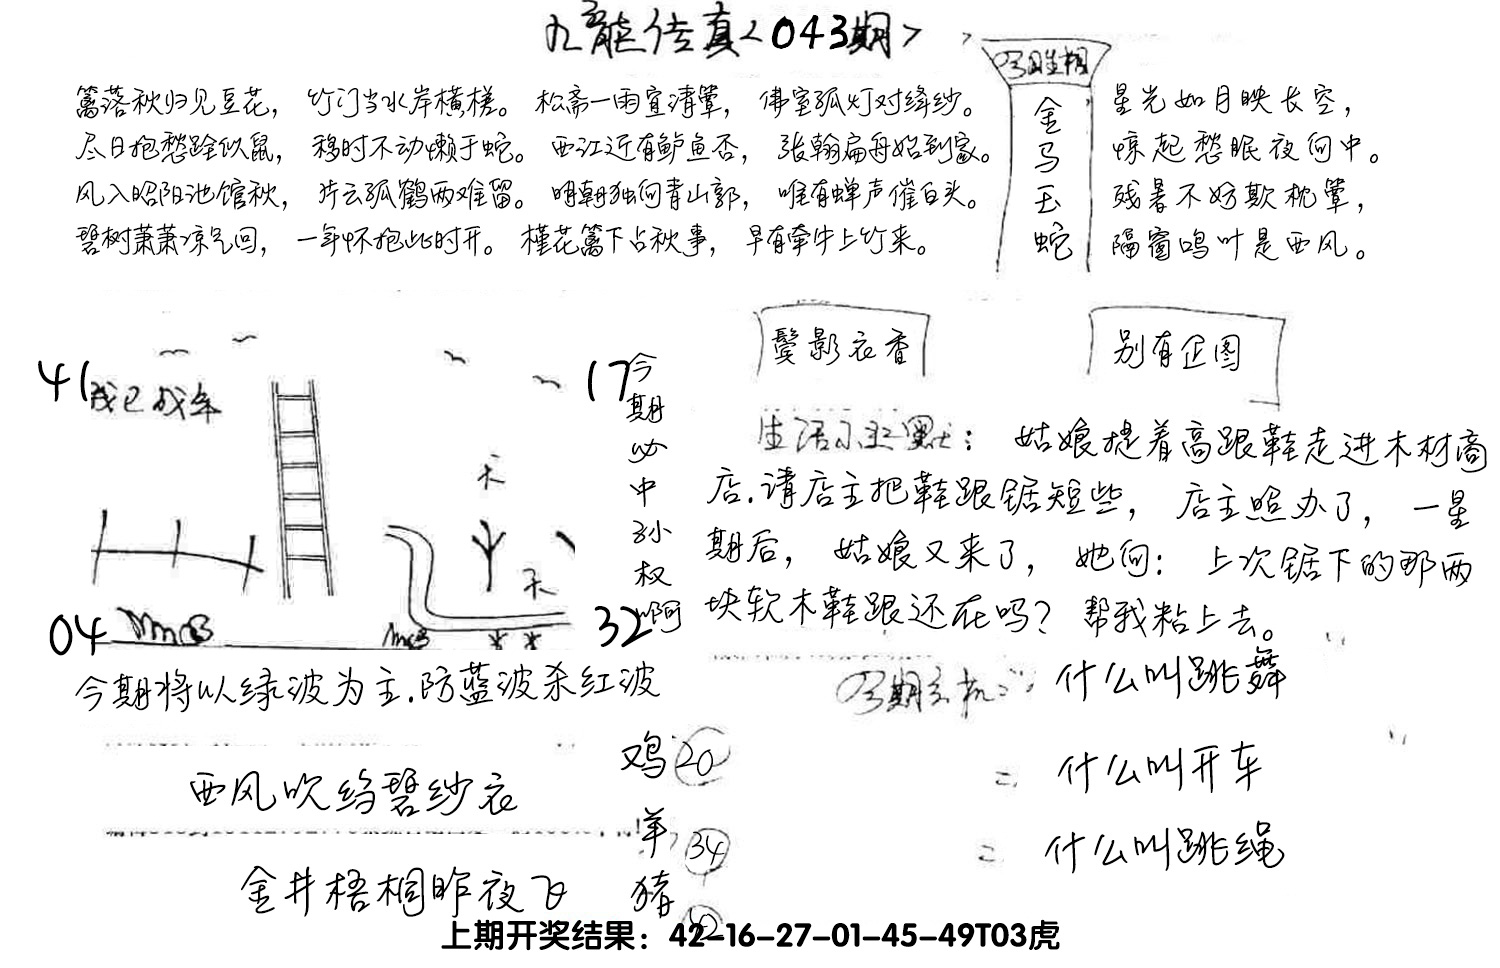 九龍传真<043期>
篱落秋归见豆花，竹门当水岸横槎。松斋一雨宜清簟，佛室孤灯对绛纱。
尽日抱愁跧似鼠，移时不动懒于蛇。西江近有鲈鱼否，张翰扁舟始到家。
风入昭阳池馆秋，片云孤鹤两难留。明朝独向青山郭，唯有蝉声催白头。
碧树萧萧凉气回，一年怀抱此时开。槿花篱下占秋事，早有牵牛上竹来。
今期生相
金
马
玉
蛇
星光如月映长空，
惊起愁眠夜向中。
残暑不妨欺枕簟，
隔窗鸣叶是西风。
鬓影衣香
别有企图
41
17
04
32
天
天
今
期
必
中
孙
权
啊
生活小幽默：姑娘提着高跟鞋走进木材商
店.请店主把鞋跟锯短些，店主照办了，一星
期后，姑娘又来了，她问：上次锯下的那两
块软木鞋跟还在吗？帮我粘上去。
今期将以绿波为主.防蓝波杀红波
今期玄机：什么叫跳舞
二 什么叫开车
二 什么叫跳绳
西风吹绉碧纱衣
金井梧桐昨夜飞
鸡 20
羊 34
猪
上期开奖结果：42-16-27-01-45-49T03虎